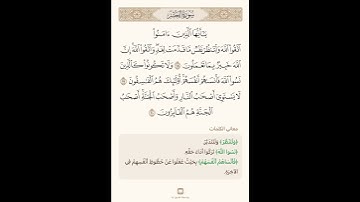 سورة الحشر
يَـٰٓأَيُّهَا ٱلَّذِينَ ءَامَنُوا۟
ٱتَّقُوا۟ ٱللَّهَ وَلْتَنظُرْ نَفْسٌ مَّا قَدَّمَتْ لِغَدٍ وَٱتَّقُوا۟ ٱللَّهَ إِنَّ
ٱللَّهَ خَبِيرٌۢ بِمَا تَعْمَلُونَ ١٨ وَلَا تَكُونُوا۟ كَٱلَّذِينَ
نَسُوا۟ ٱللَّهَ فَأَنسَىٰهُمْ أَنفُسَهُمْ أُو۟لَـٰٓئِكَ هُمُ ٱلْفَـٰسِقُونَ ١٩
لَا يَسْتَوِىٓ أَصْحَـٰبُ ٱلنَّارِ وَأَصْحَـٰبُ ٱلْجَنَّةِ أَصْحَـٰبُ
ٱلْجَنَّةِ هُمُ ٱلْفَآئِزُونَ ٢٠
معاني الكلمات
﴿وَلْتَنظُرْ﴾ وَلْتَتَدَبَّرْ.
﴿نَسُوا اللَّهَ﴾ تَرَكُوا أَدَاءَ حَقِّهِ.
﴿فَأَنسَاهُمْ أَنفُسَهُمْ﴾ بِحَيْثُ غَفَلُوا عَنْ حُظُوظِ أَنْفُسِهِمْ فِي
الآخِرَةِ.